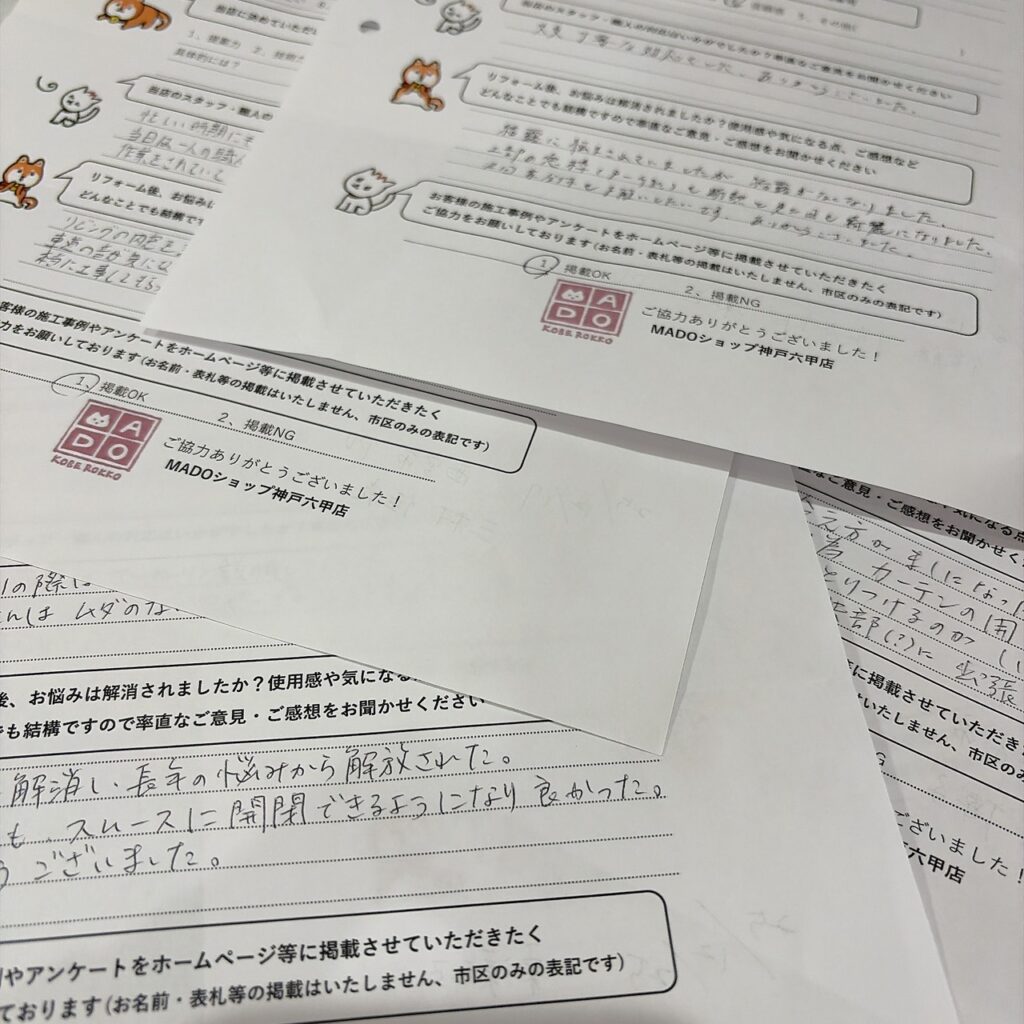 当店に決めていただい
1、提案力 2、
具体的には？
当店のスタッフ・職人の
忙しい時期に
当日は一人の職人
作業をされていて
リフォーム後、お悩みは
どんなことでも結構です
リビングの
客様の施工事例やアンケートをホームページ等に掲載させていただきたく
力をお願いしております(お名前・表札等の掲載はいたしません、市区のみの表記です)
1、掲載OK
2、掲載NG
MADO
KOBE ROKKO
ご協力ありがとうございました！
MADOショップ神戸六甲店
大変丁寧な対応でした。ありがとうございました。
リフォーム後、お悩みは解消されましたか？使用感や気になる点、ご感想など
どんなことでも結構ですので率直なご意見・ご感想をお聞かせください
結露に悩まされていましたが 結露しなくなりました。
も断熱と見た目も綺麗になりました。
ありがとうございました。
お客様の施工事例やアンケートをホームページ等に掲載させていただきたく
ご協力をお願いしております(お名前・表札等の掲載はいたしません、市区のみの表記です)
1、掲載OK
2、掲載NG
MADO
KOBE ROKKO
ご協力ありがとうございました！
MADOショップ神戸六甲店
の際は
さんは ムダのな
後、お悩みは解消されましたか？使用感や気になる
も結構ですので率直なご意見・ご感想をお聞かせください
解消し、長年の悩みから解放された。
も、スムースに開閉できるようになり良かった。
うございました。
やアンケートをホームページ等に掲載させていただきたく
ております(お名前・表札等の掲載はいたしません、市区のみの表記です)
気になる点
なご意見・ご感想をお聞かせく
え方がましになった
カーテンの開
とりつけるのが
部(?)に出張
に掲載させていただき
いたしません、市区のみ
ございました！
六甲店